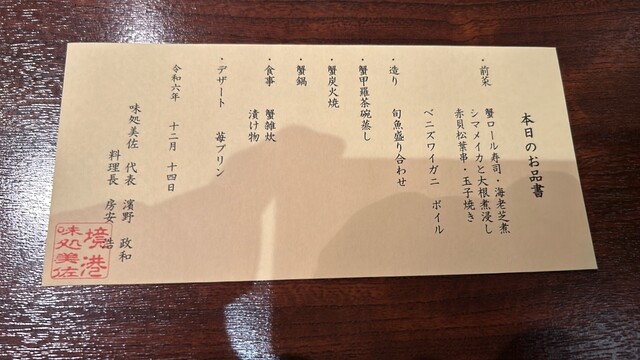 本日のお品書
・前菜　蟹ロール寿司・海老芝煮
シマメイカと大根煮浸し
赤貝松葉串・玉子焼き
ベニズワイガニ　ボイル
・造り　旬魚盛り合わせ
・蟹甲羅茶碗蒸し
・蟹炭火焼
・蟹鍋
・食事　蟹雑炊
漬け物
・デザート　苺プリン
令和六年　十二月　十四日
味処美佐　代表　濱野　政和
料理長　房安　浩
境港
味処美佐